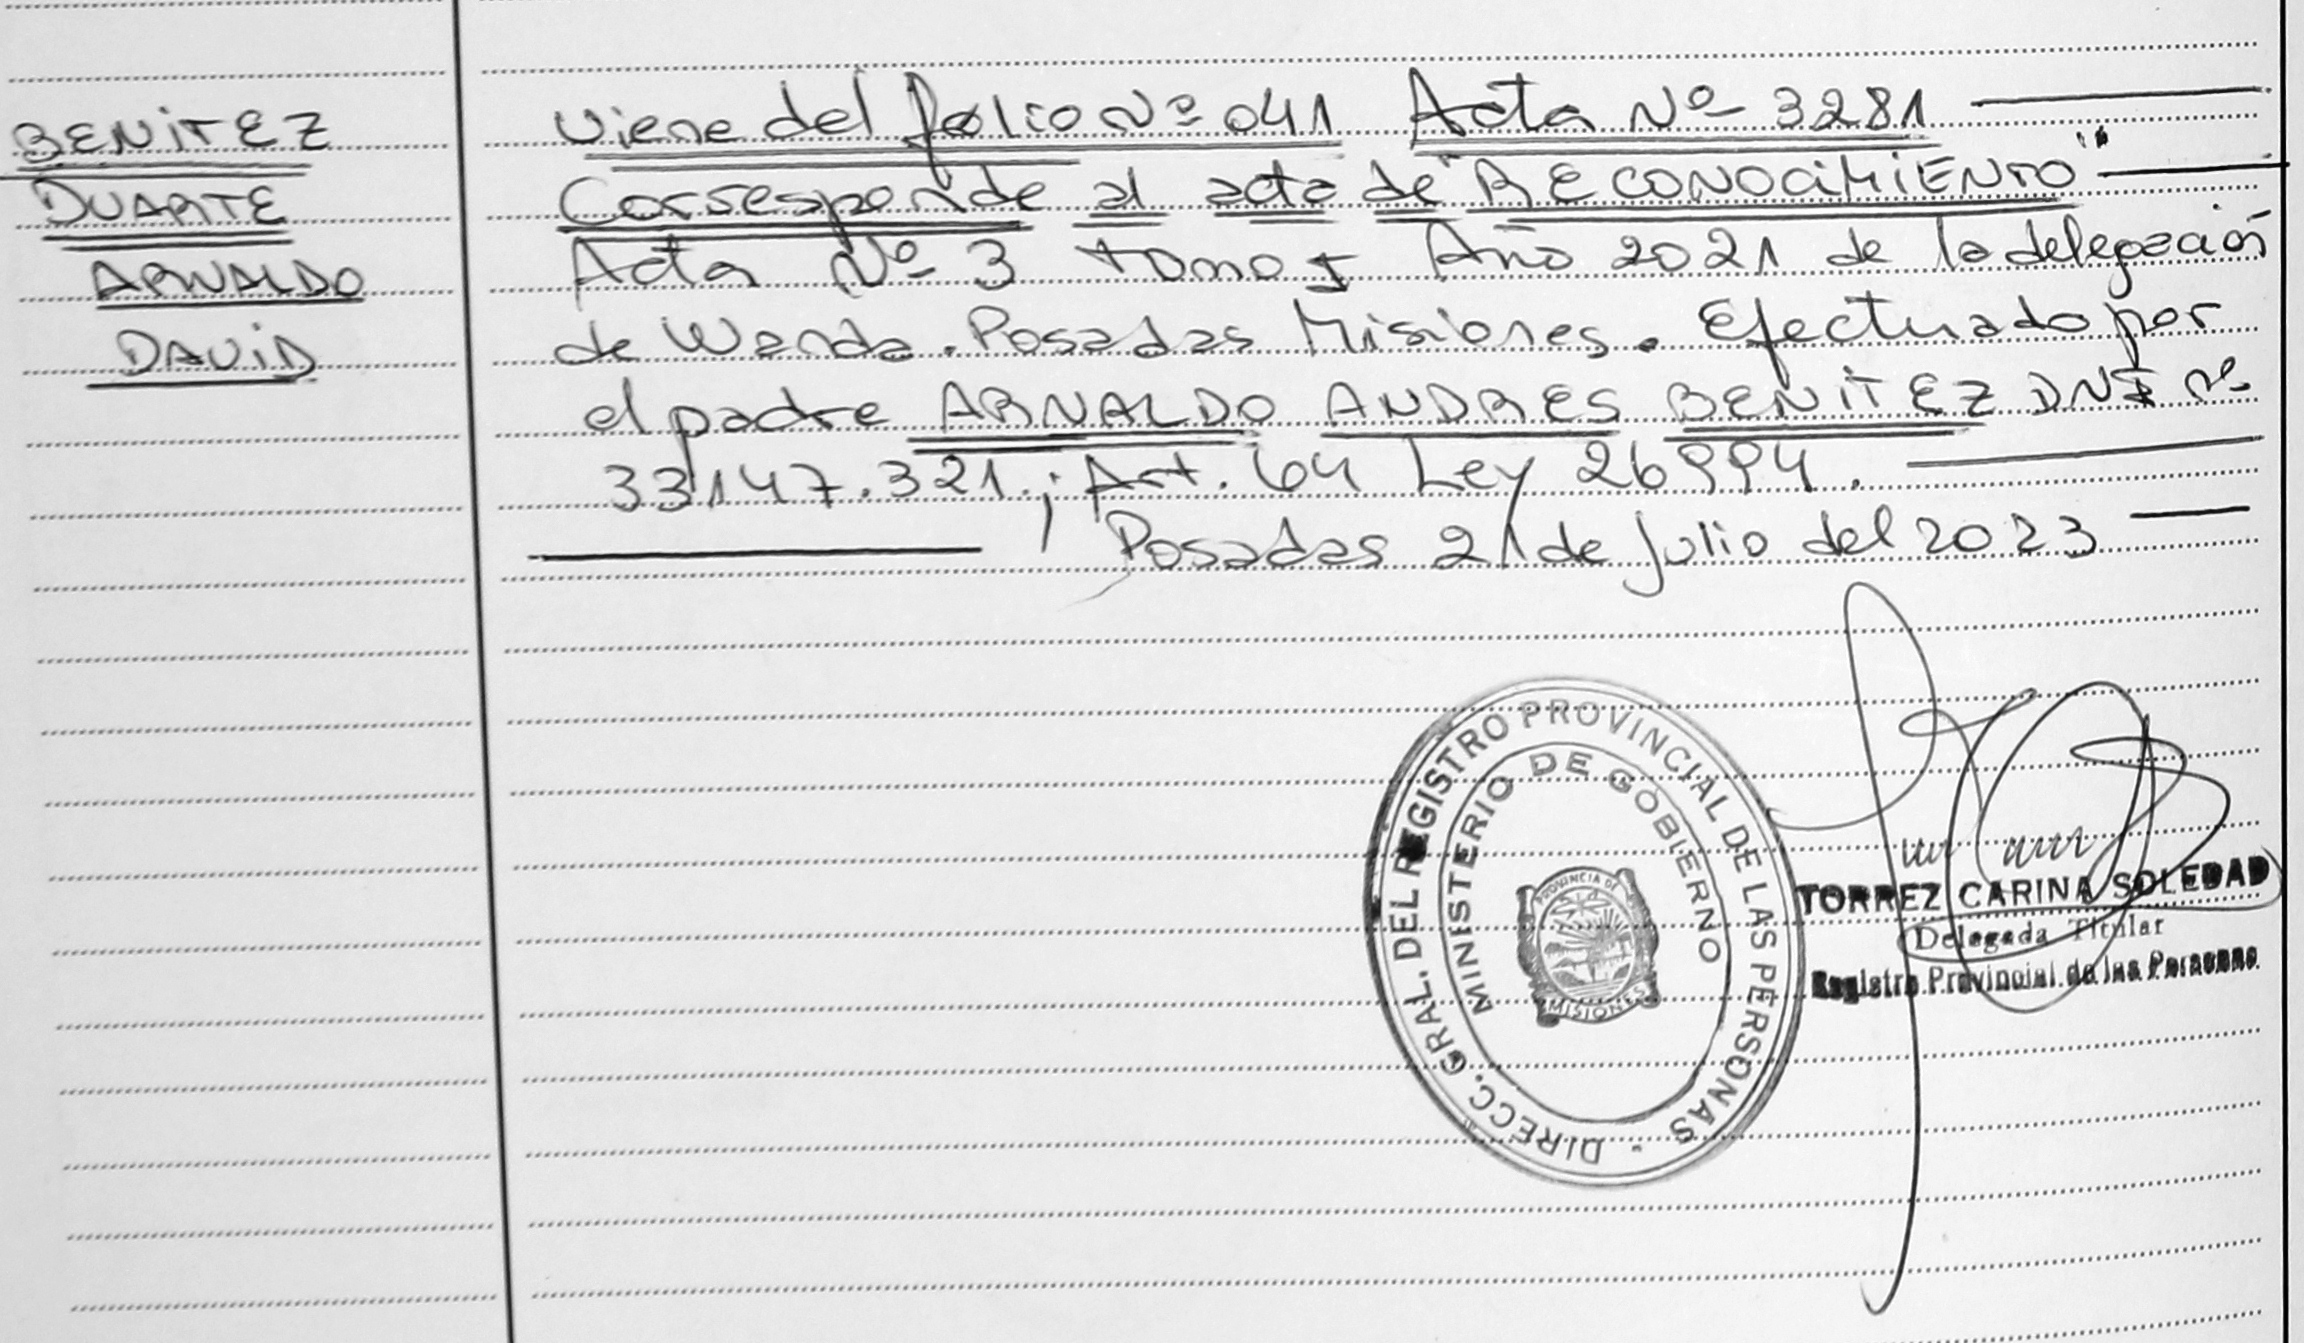 BENITEZ
DUARTE
ARNALDO
DAVID
Viene del folio Nº 041 Acta Nº 3281
Corresponde al acta de "RECONOCIMIENTO"
Acta Nº 3 tomo I Año 2021 de la delegación
de Wanda. Posadas Misiones. Efectuado por
el padre ARNALDO ANDRES BENITEZ DNI Nº
33147.321.; Art. 64 Ley 26994.
Posadas 21 de Julio del 2023
DIRECC. GRAL. DEL REGISTRO PROVINCIAL DE LAS PERSONAS -
MINISTERIO DE GOBIERNO
PROVINCIA DE
MISIONES
TORREZ CARINA SOLEDAD
Delegada Titular
Registro Provincial de las Personas